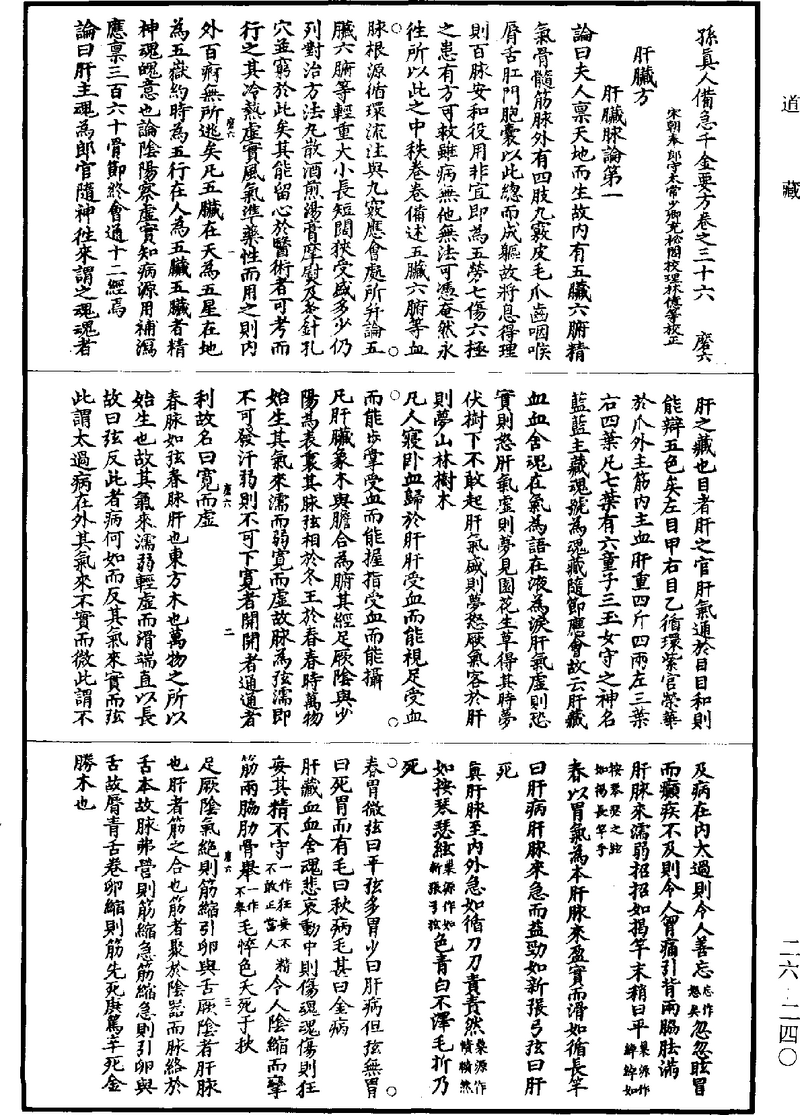 道藏
孫真人備急千金要方卷之三十六 磨六
宋朝奉郎守太常少卿充秘閣校理林億等校正
肝臟方
肝臟脉論第一
論曰夫人禀天地而生故内有五臟六腑精
氣骨髓筋脉外有四肢九竅皮毛爪齒咽喉
脣舌肛門胞囊以此總而成軀故將息得理
則百脉安和役用非宜即為五勞七傷六極
之患有方可救雖病無他無法可憑奄然永
往所以此之中秩卷卷備述五臟六腑等血
脉根源循環流注與九竅應會處所并論五
臟六腑等輕重大小長短闊狹受盛多少仍
列對治方法丸散酒煎湯膏摩熨及灸針孔
穴並窮於此矣其能留心於醫術者可考而
行之其冷熱虛實風氣準藥性而用之則内
磨六 一
外百痾無所逃矣凡五臟在天為五星在地
為五嶽約時為五行在人為五臟五臟者精
神魂魄意也論陰陽察虛實知病源用補瀉
應禀三百六十骨節終會通十二經焉
論曰肝主魂為郎官隨神往來謂之魂魂者
肝之藏也目者肝之官肝氣通於目目和則
能辯五色矣左目甲右目乙循環紫宫榮華
於爪外主筋内主血肝重四斤四兩左三葉
右四葉凡七葉有六童子三玉女守之神名
藍藍主藏魂號為魂藏隨節應會故云肝藏
血血舍魂在氣為語在液為淚肝氣虛則恐
實則怒肝氣虛則夢見園花生草得其時夢
伏樹下不敢起肝氣盛則夢怒厥氣客於肝
則夢山林樹木
凡人寢卧血歸於肝肝受血而能視足受血
而能步掌受血而能握指受血而能攝
凡肝臟象木與膽合為腑其經足厥陰與少
陽為表裏其脉弦相於冬王於春春時萬物
始生其氣來濡而弱寬而虛故脉為弦濡即
不可發汗弱則不可下寬者開開者通通者
磨六 二
利故名曰寬而虛
春脉如弦春脉肝也東方木也萬物之所以
始生也故其氣來濡弱輕虛而滑端直以長
故曰弦反此者病何如而反其氣來實而弦
此謂太過病在外其氣來不實而微此謂不
及病在内太過則令人善忘忘作怒矣忽忽眩冒
而癲疾不及則令人胷痛引背兩脇胠滿
肝脉來濡弱招招如揭竿末稍曰平巢源作綽綽如
按琴瑟之絃如揭長竿乎
春以胃氣為本肝脉來盈實而滑如循長竿
曰肝病肝脉來急而益勁如新張弓弦曰肝
死
真肝脉至内外急如循刀刃責責然巢源作賾賾然
如按琴瑟絃巢源作如新張弓弦色青白不澤毛折乃
死
春胃微弦曰平弦多胃少曰肝病但弦無胃
曰死胃而有毛曰秋病毛甚曰金病
肝藏血血舍魂悲哀動中則傷魂魂傷則狂
妄其精不守一作狂妄不精不敢正當人令人陰縮而攣
筋兩脇肋骨舉一作不舉毛悴色夭死于秋
磨六 三
足厥陰氣絶則筋縮引卵與舌厥陰者肝脉
也肝者筋之合也筋者聚於陰器而脉絡於
舌本故脉弗營則筋縮急筋縮急則引卵與
舌故脣青舌卷卵縮則筋先死庚篤辛死金
勝木也
二六·二四〇